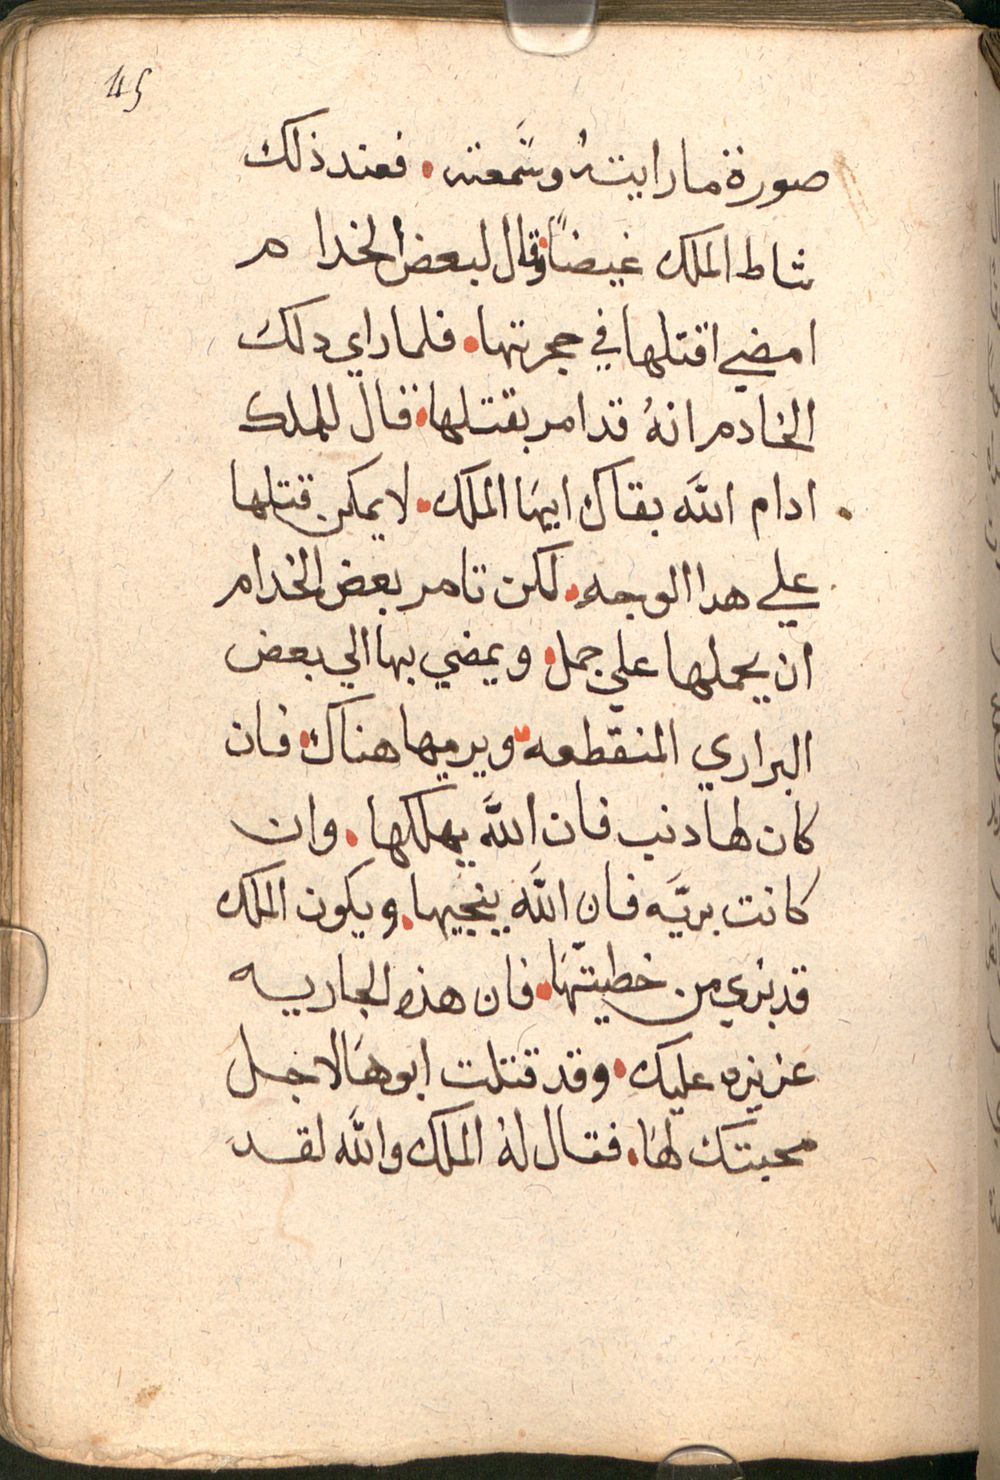 45
صورة ما رايتهُ وسَمعته. فعند ذلك
شاط الملك غيضاً وقال لبعض الخدا م
امضي اقتلها في حجرتها. فلما راي دلك
الخادم انهُ قد امر بقتلها. قال للملك
ادام اللَّه بقاك ايهَا الملك. لا يمكن قتلها
علي هدا الوجه. لكن تامر بعض الخدام
ان يحملها علي جمل. ويمضي بها الي بعض
البراري المنقطعه. ويرميها هناك. فان
كان لها دنب فان اللَّه يهلكها. وان
كانت بريَّه فان اللَّه ينجيها. ويكون الملك
قد بري من خطيتهَا. فان هذه الجاريه
عزيزه عليك. وقد قتلت ابوهَا لاجل
محبتك لهَا. فقال لهُ الملك واللَّه لقد